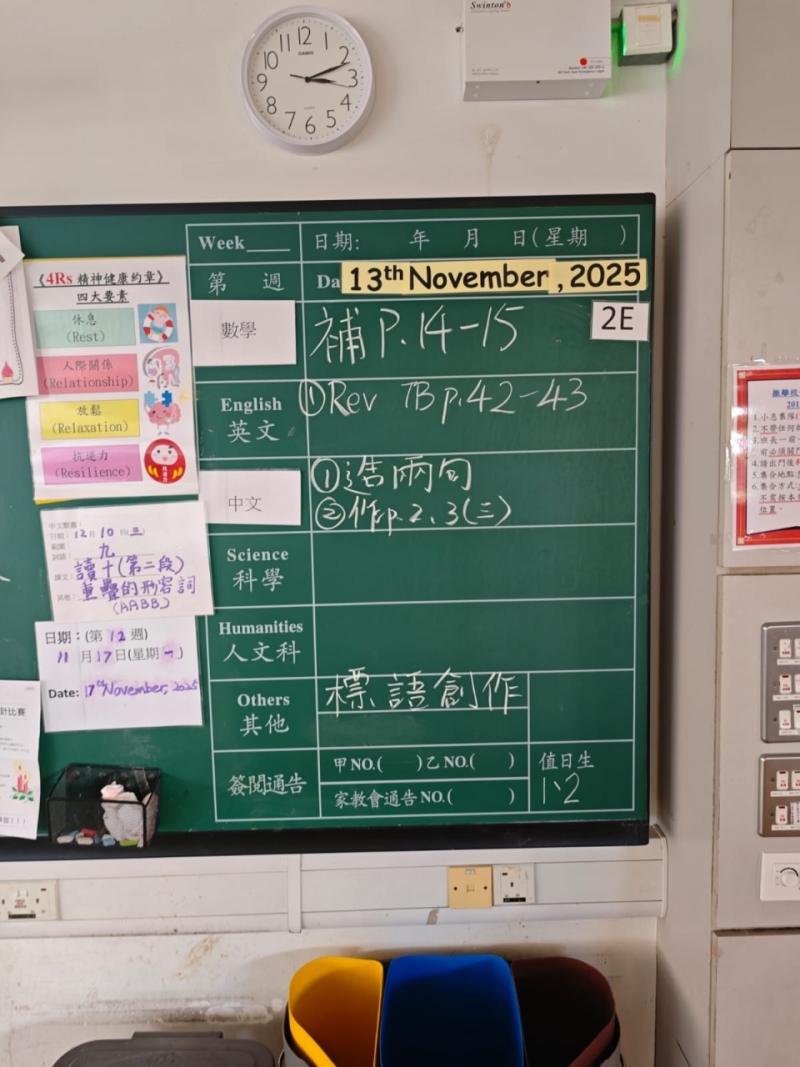 12
1
2
3
4
5
6
7
8
9
10
11
CASIO
Swinton
Week
日期: 年 月 日(星期 )
第 週
13th November, 2025
2E
數學
補 P.14-15
English
英文
① Rev TB p.42-43
中文
① 造兩句
② 作p.2、3(三)
Science
科學
Humanities
人文科
Others
其他
標語創作
簽閱通告
甲NO.( )乙NO.( )
家教會通告NO.( )
值日生
1、2
《4Rs 精神健康約章》
四大要素
休息
(Rest)
人際關係
(Relationship)
放鬆
(Relaxation)
抗逆力
(Resilience)
抗逆力
中文默書:
日期: 12月 10 日(三)
範圍:
詞語: 九
課文: 讀十(第二段)
其他: 重疊的形容詞
(AABB)
日期：(第 12 週)
11 月 17 日(星期 一)
Date: 17th November, 2025
計比賽